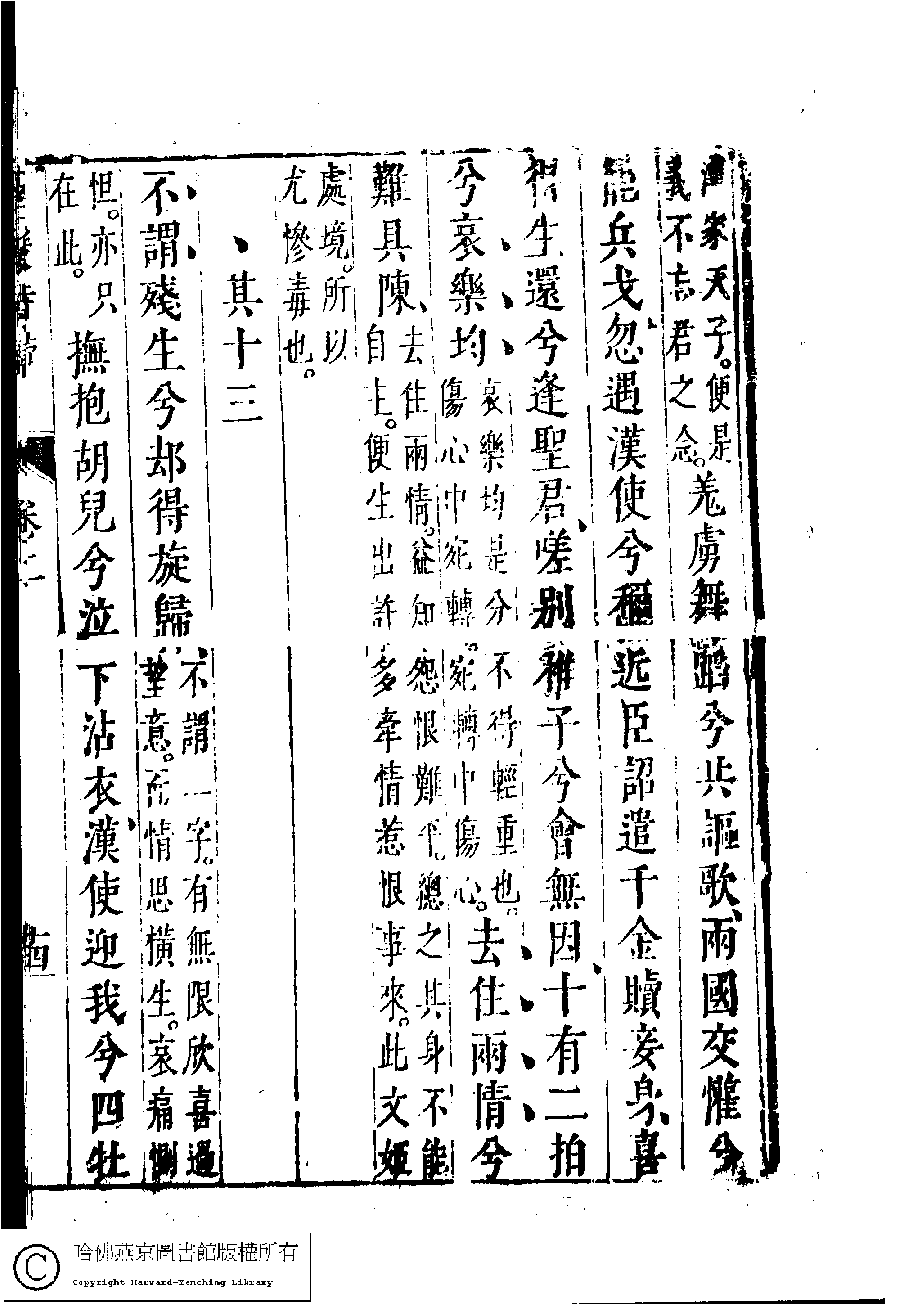 漢家天子。便是
義不忘君之念。
羌虜舞蹈兮共謳歌、兩國交懽兮
罷兵戈、忽遇漢使兮稱近臣詔遣千金贖妾身、喜
得生還兮逢聖君、嗟別稚子兮會無因、十有二拍
兮哀樂均、
哀樂均是分不得輕重也。
傷心中宛轉。宛轉中傷心。
去住兩情兮
難具陳、
去住兩情。益知怨恨難平。總之其身不能
自主。便生出許多牽情惹恨事來。此文姬
處境。所以
尤慘毒也。
其十三
不謂殘生兮却得旋歸、
不謂一字。有無限欣喜過
望意。而情思橫生。哀痛惻
怛。亦只
在此。
撫抱胡兒兮泣下沾衣、漢使迎我兮四牡
哈佛燕京圖書館版權所有
Copyright Harvard-Yenching Library